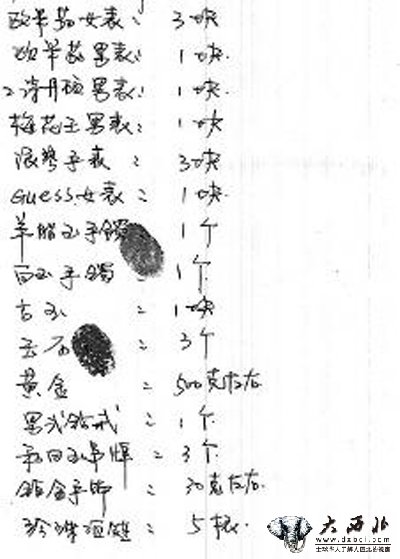 欧米茄女表: 3块
欧米茄男表: 1块.
江诗丹顿男表: 1块
梅花王男表: 1块
浪琴手表: 3块
Guess女表: 1块.
羊脂玉手镯 1个
白玉手镯: 1个
古玉 : 1块
玉石 : 3个
黄金 : 500克左右
男式钻戒: 1个.
和田玉 : 3个.
铂金手 : 30克左右.
珍珠项链: 5根.
大西北
www.dxbei.com